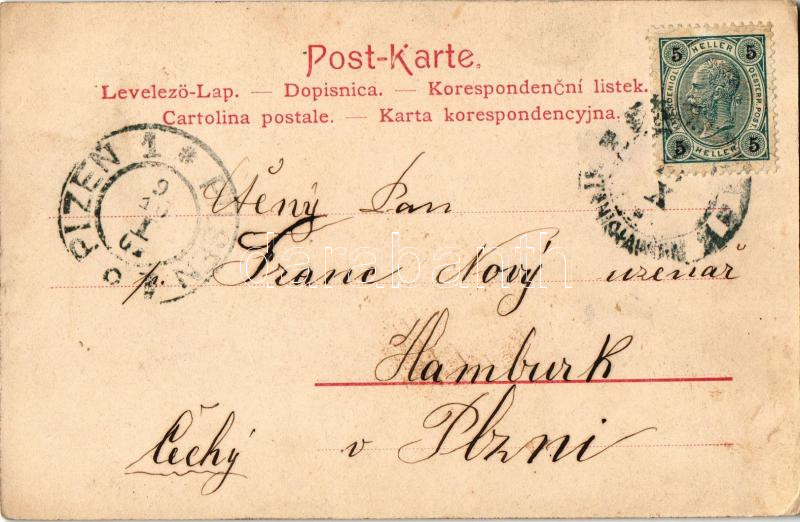 Post-Karte.
Levelezö-Lap. — Dopisnica. — Korespondenční listek.
Cartolina postale. — Karta korespondencyjna.
5 HELLER 5
OESTERR. POST
5 HELLER 5
PLZEN 1 * PILSEN 1
Ctěný Pan
p. Franc Nový uzenář
Hamburk
v Plzni
Čechý
darabanth